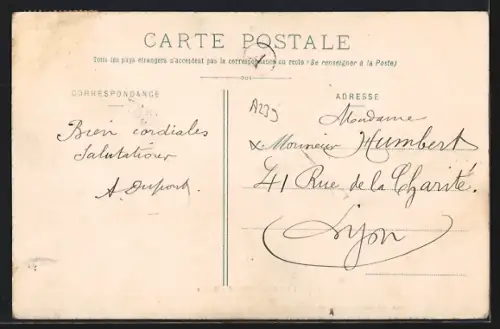 CARTE POSTALE
Tous les pays étrangers n'acceptent pas la correspondance au recto (Se renseigner à la Poste)
CORRESPONDANCE
ADRESSE
A239
Bien cordiales
Salutations
A. Dupont.
Madame
& Monsieur Humbert
41 Rue de la Charité.
Lyon